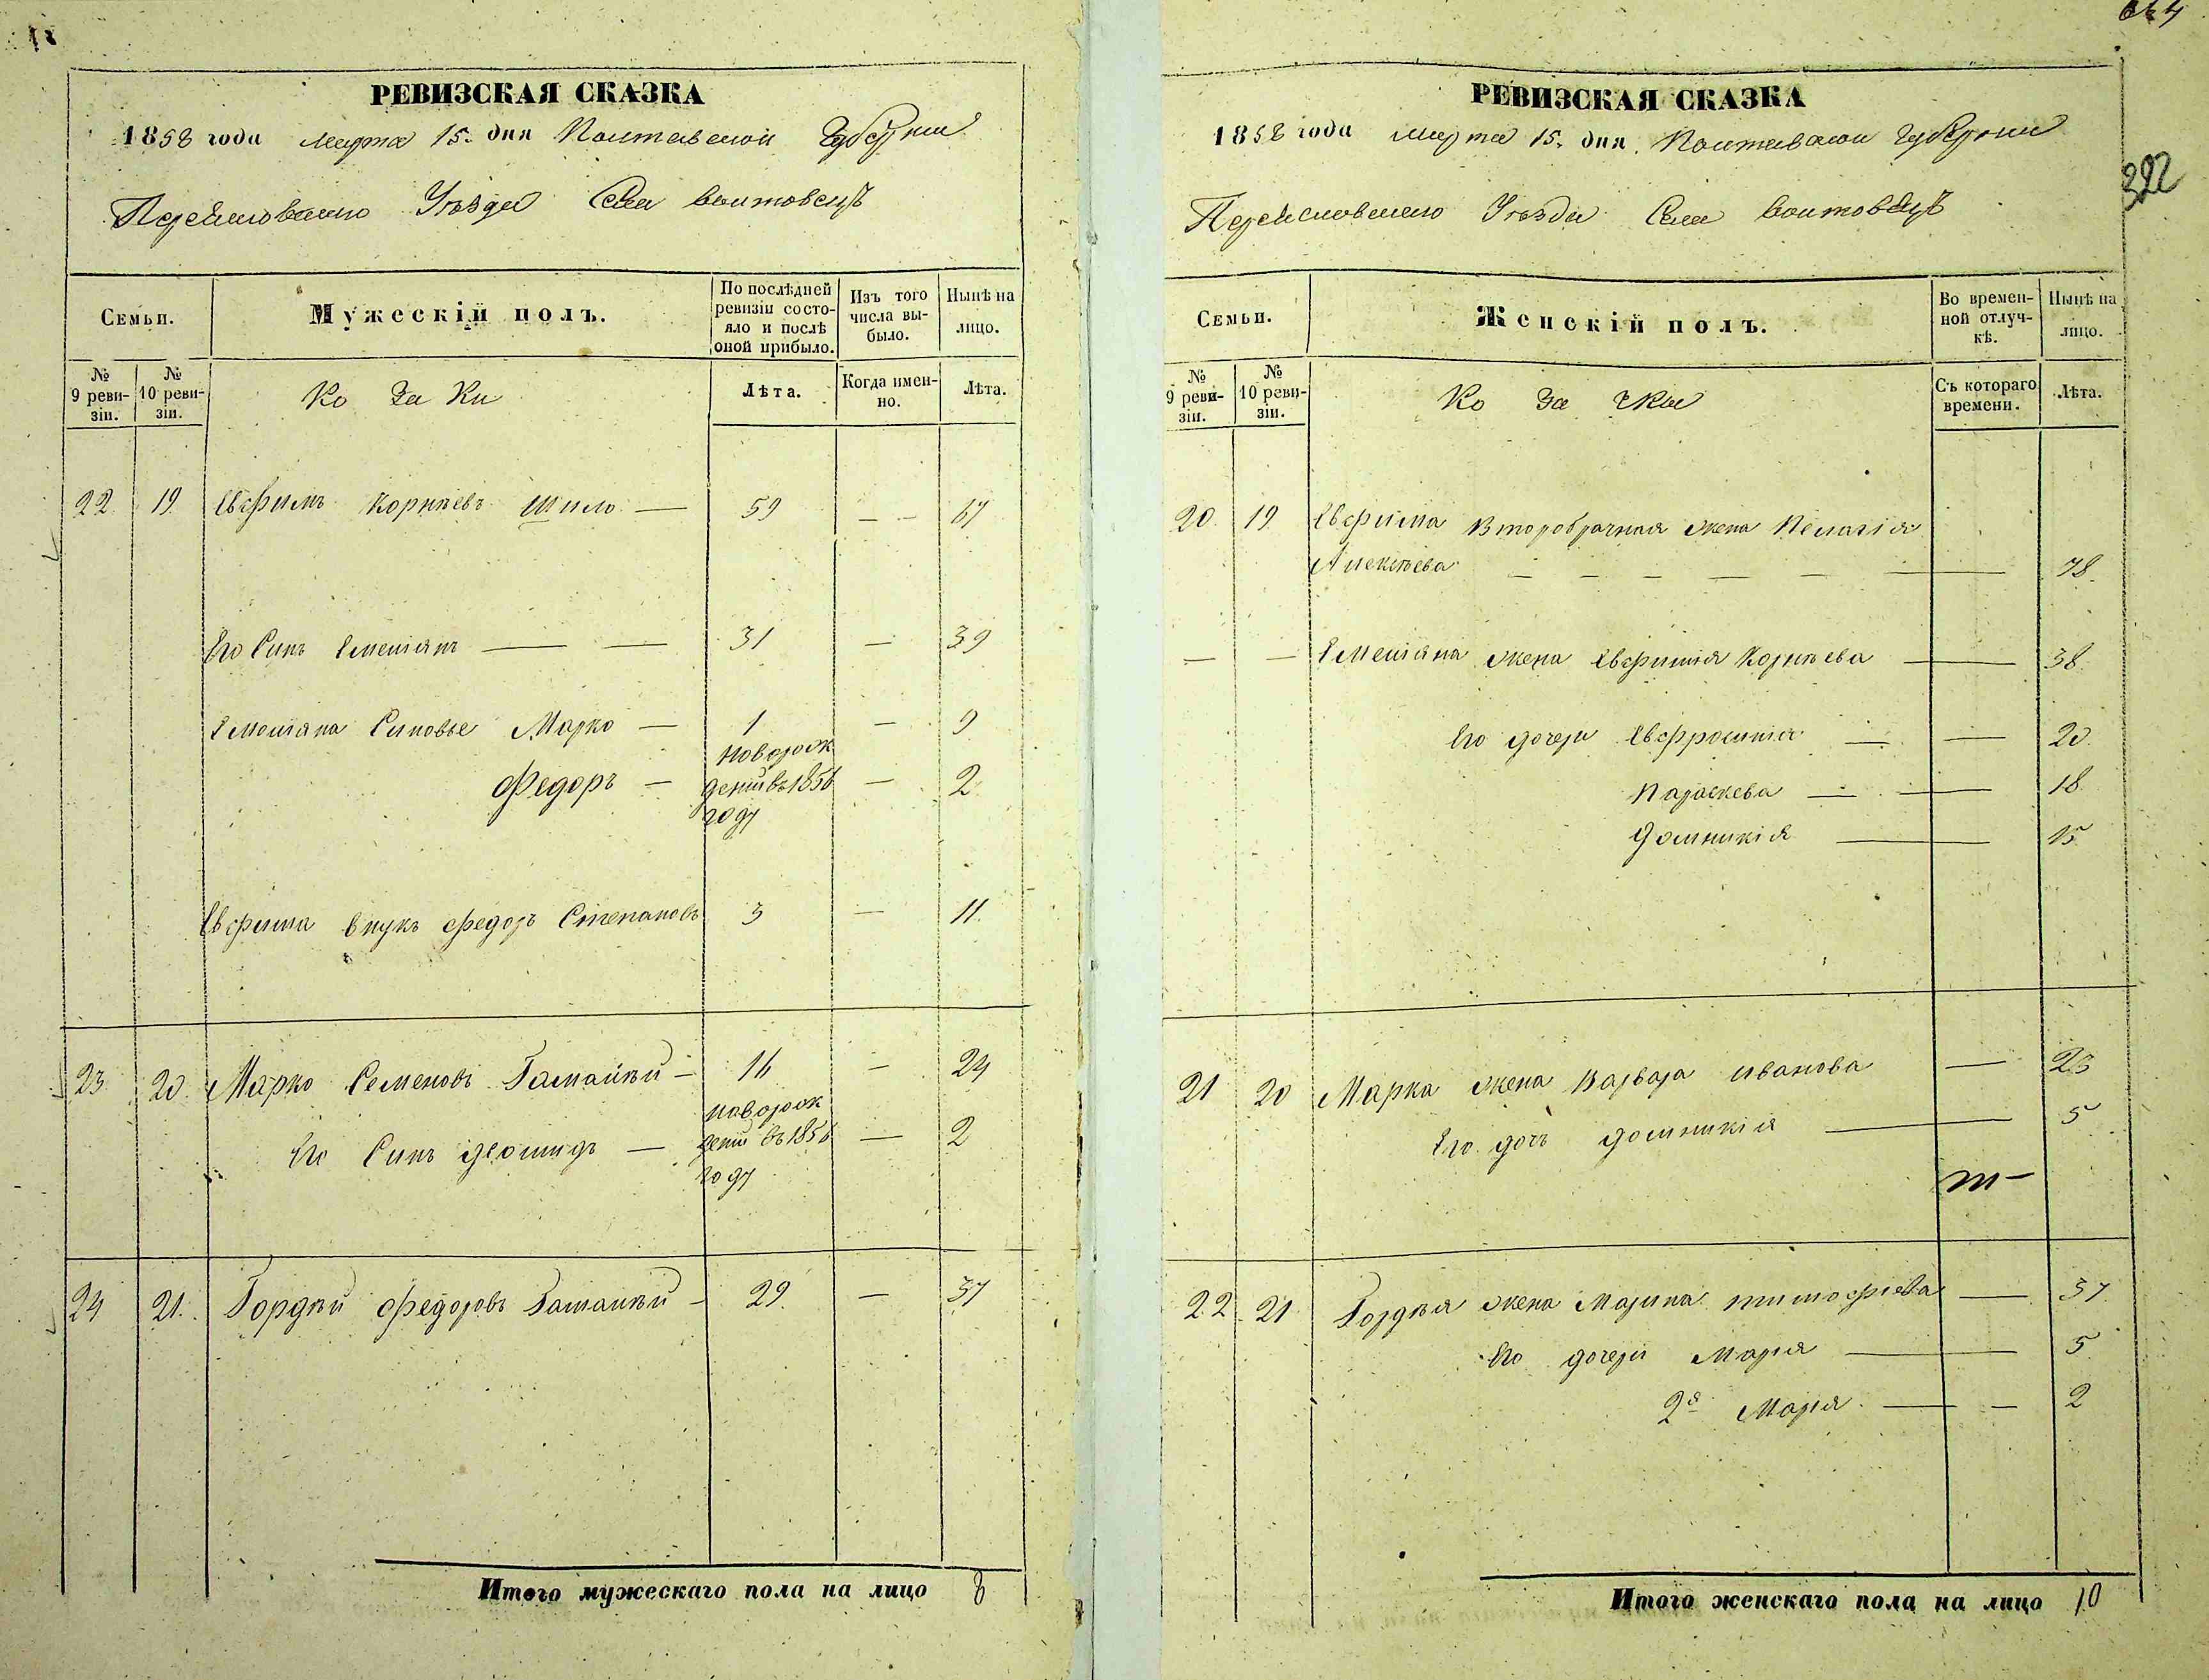 РЕВИЗСКАЯ СКАЗКА
1858 года марта 15. дня Полтавской Губернии
Переяславскаго Уѣзда Села Воитовецъ
Семьи.
Мужескій полъ.
По послѣдней ревизіи состояло и послѣ оной прибыло.
Изъ того числа выбыло.
Нынѣ на лицо.
№ 9 ревизіи.
№ 10 ревизіи.
Козаки
Лѣта.
Когда именно.
Лѣта.
22 19 Евфимъ Корнѣевъ Шило — 59 — — 67
Его Синъ Емеліянъ — — 31 — 39
Емеліяна Синовье Марко — 1 — 9
Федоръ — новорожденй въ 1856 году — 2
Евфима внукъ Федоръ Степановъ 3 — 11
23 20 Марко Семеновъ Гамалѣй — 16 — 24
Его Синъ Леонидъ — новорожденй въ 1856 году — 2
24 21. Гордѣй Федоровъ Гамалѣй — 29. — 37
Итого мужескаго пола на лицо 8
322
РЕВИЗСКАЯ СКАЗКА
1858 года марта 15. дня Полтавской Губернии
Переяславскаго Уѣзда Села Воитовецъ
Семьи.
Женскій полъ.
Во временной отлучкѣ.
Нынѣ на лицо.
№ 9 ревизіи.
№ 10 ревизіи.
Козачки
Съ котораго времени.
Лѣта.
20. 19 Евфима второбрачная жена Пелагія
Алексѣева — — — — — — 78.
— — Емеліяна жена Евфимія Корнѣева — 38.
Его дочери Евфросинія — — 20.
Параскева — — 18
Домникія — 15
21 20 Марка жена Варвара Иванова — 23
Его дочь Домникія — 5
22. 21 Гордѣя жена Марина Тимофіева — 37
Его дочери Марія — 5
2я Марія. — — 2
Итого женскаго пола на лицо 10